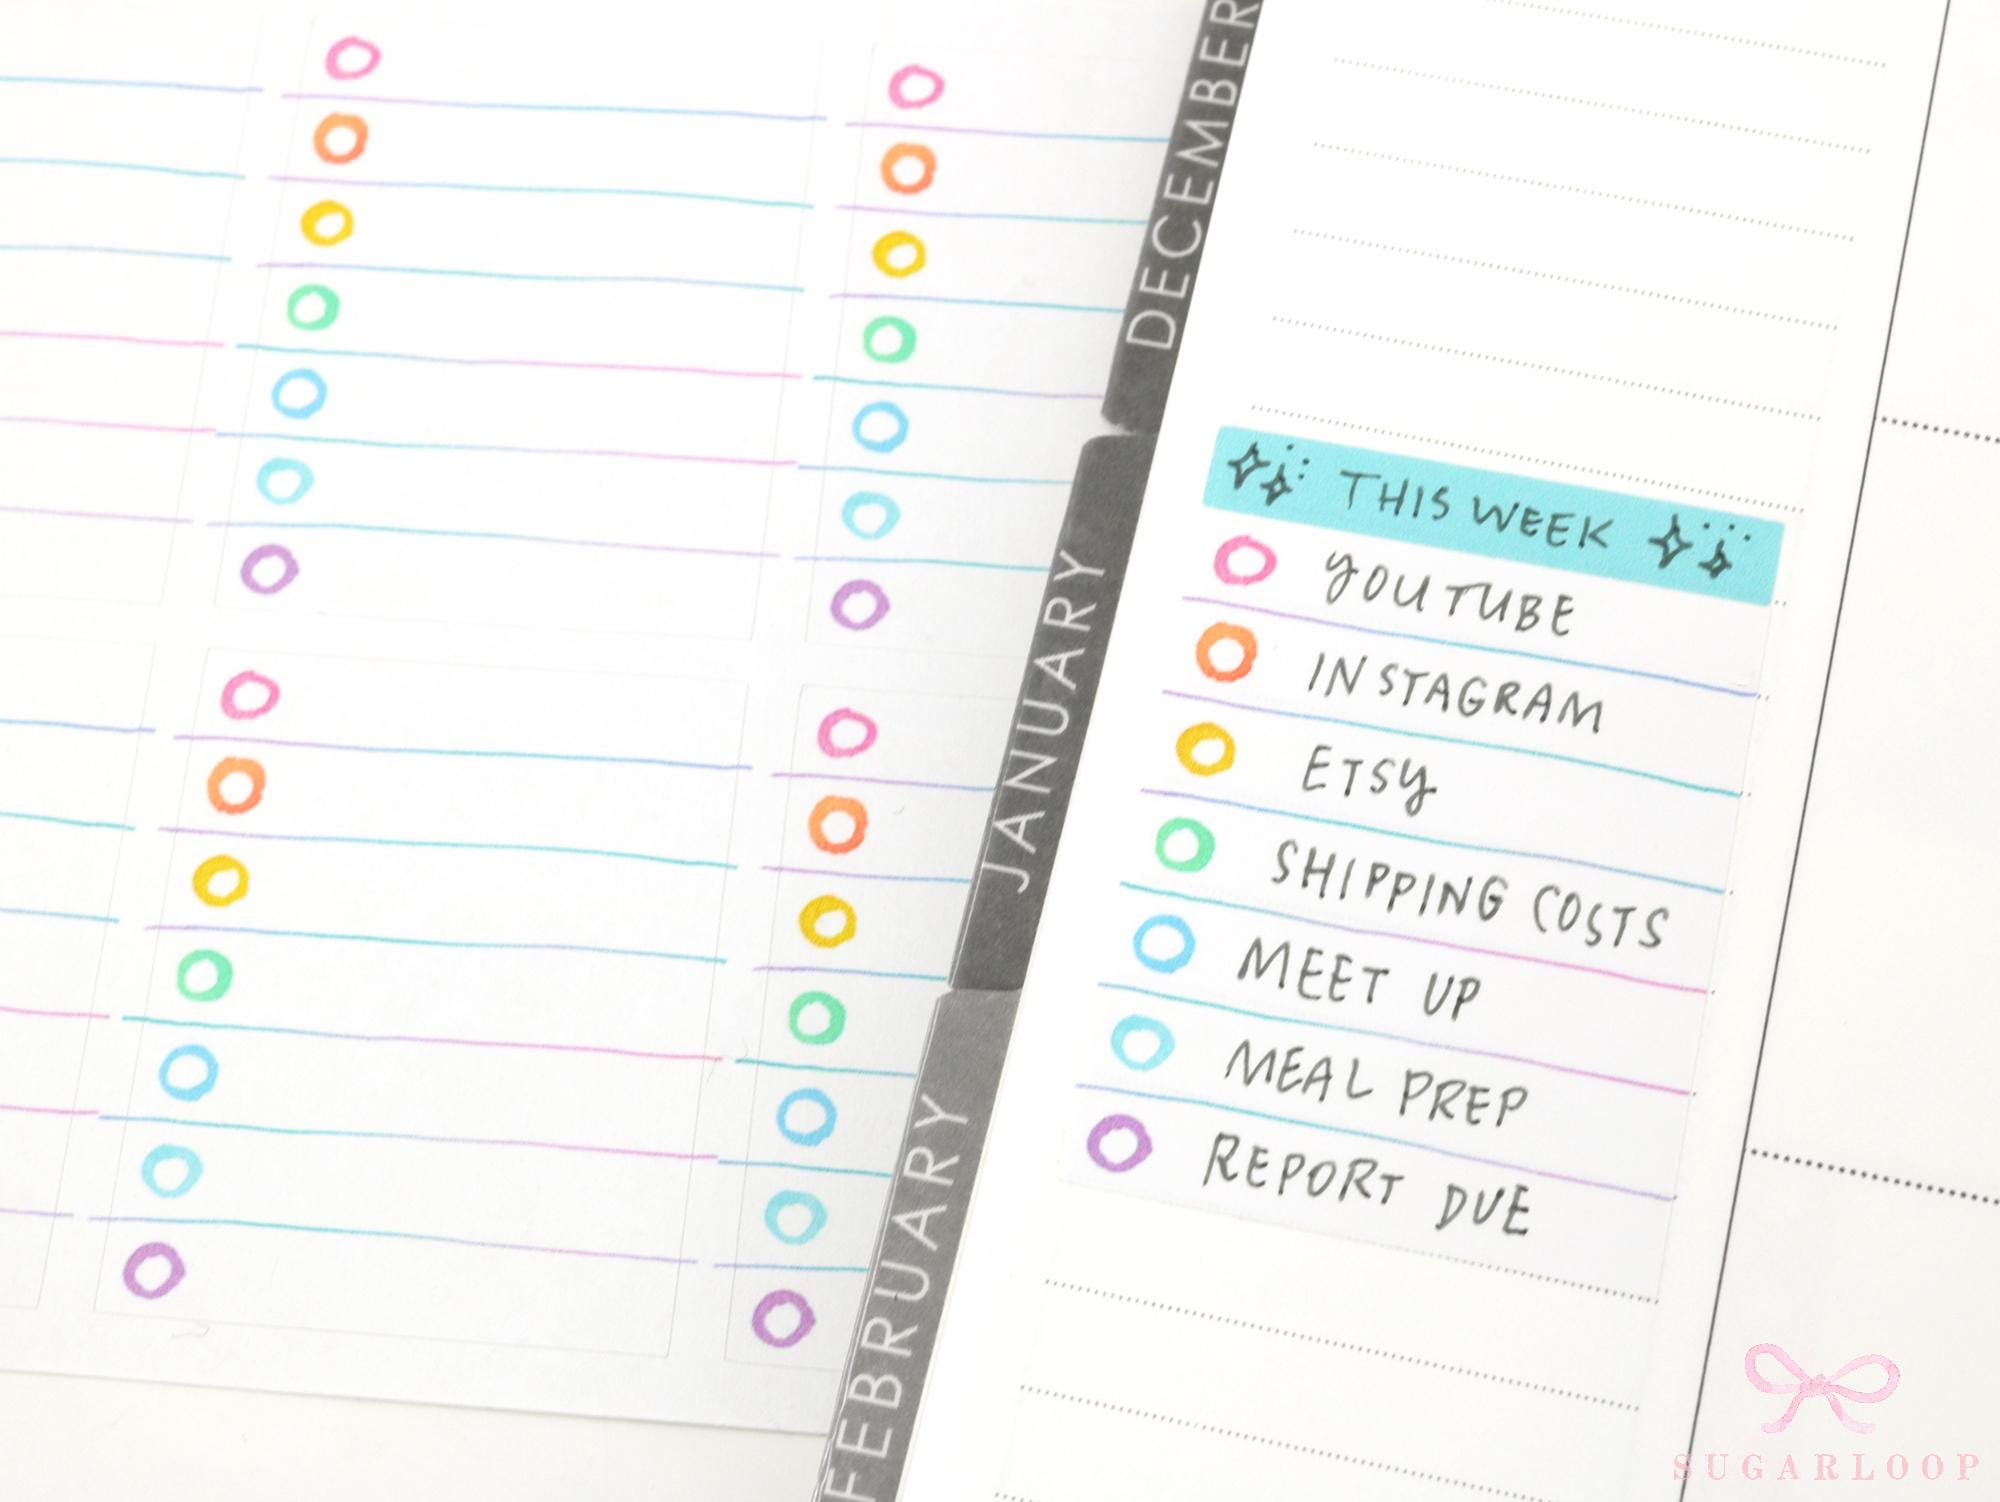 DECEMBER
JANUARY
FEBRUARY
THIS WEEK
YOUTUBE
INSTAGRAM
ETSY
SHIPPING COSTS
MEET UP
MEAL PREP
REPORT DUE
SUGARLOOP